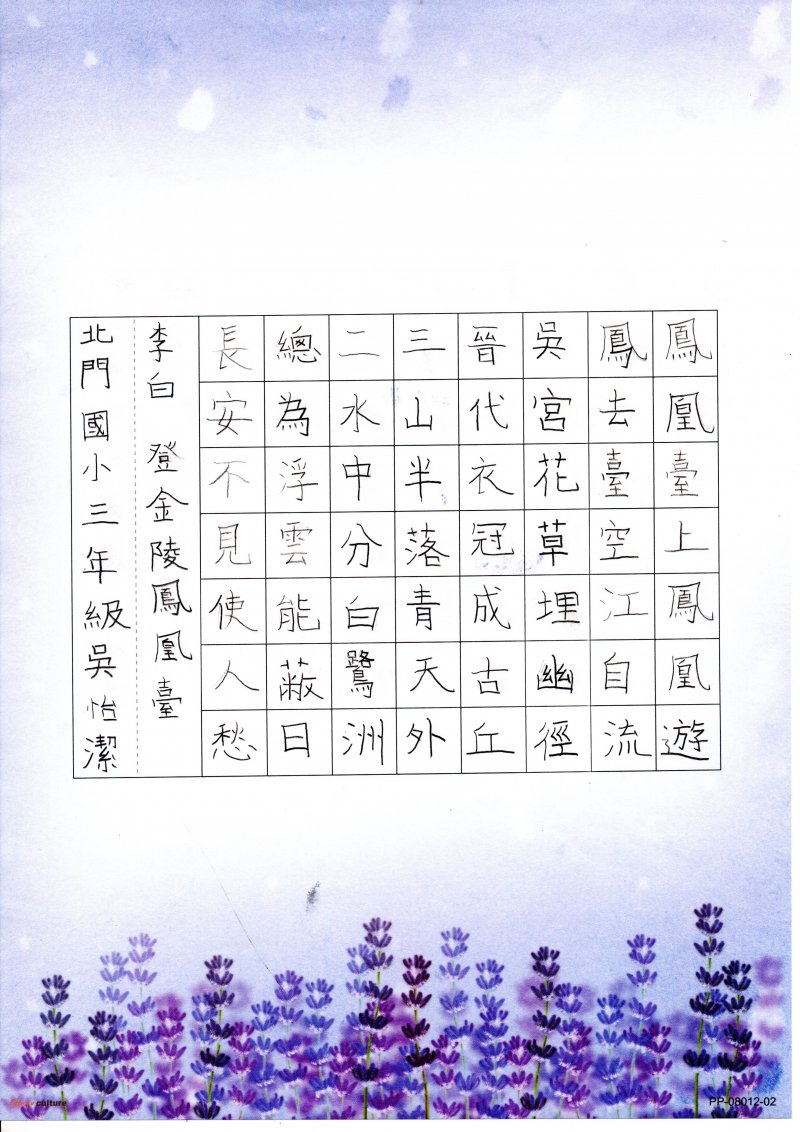 鳳凰臺上鳳凰遊
鳳去臺空江自流
吳宮花草埋幽徑
晉代衣冠成古丘
三山半落青天外
二水中分白鷺洲
總為浮雲能蔽日
長安不見使人愁
李白 登金陵鳳凰臺
北門國小三年級吳怡潔
culture
PP-08012-02